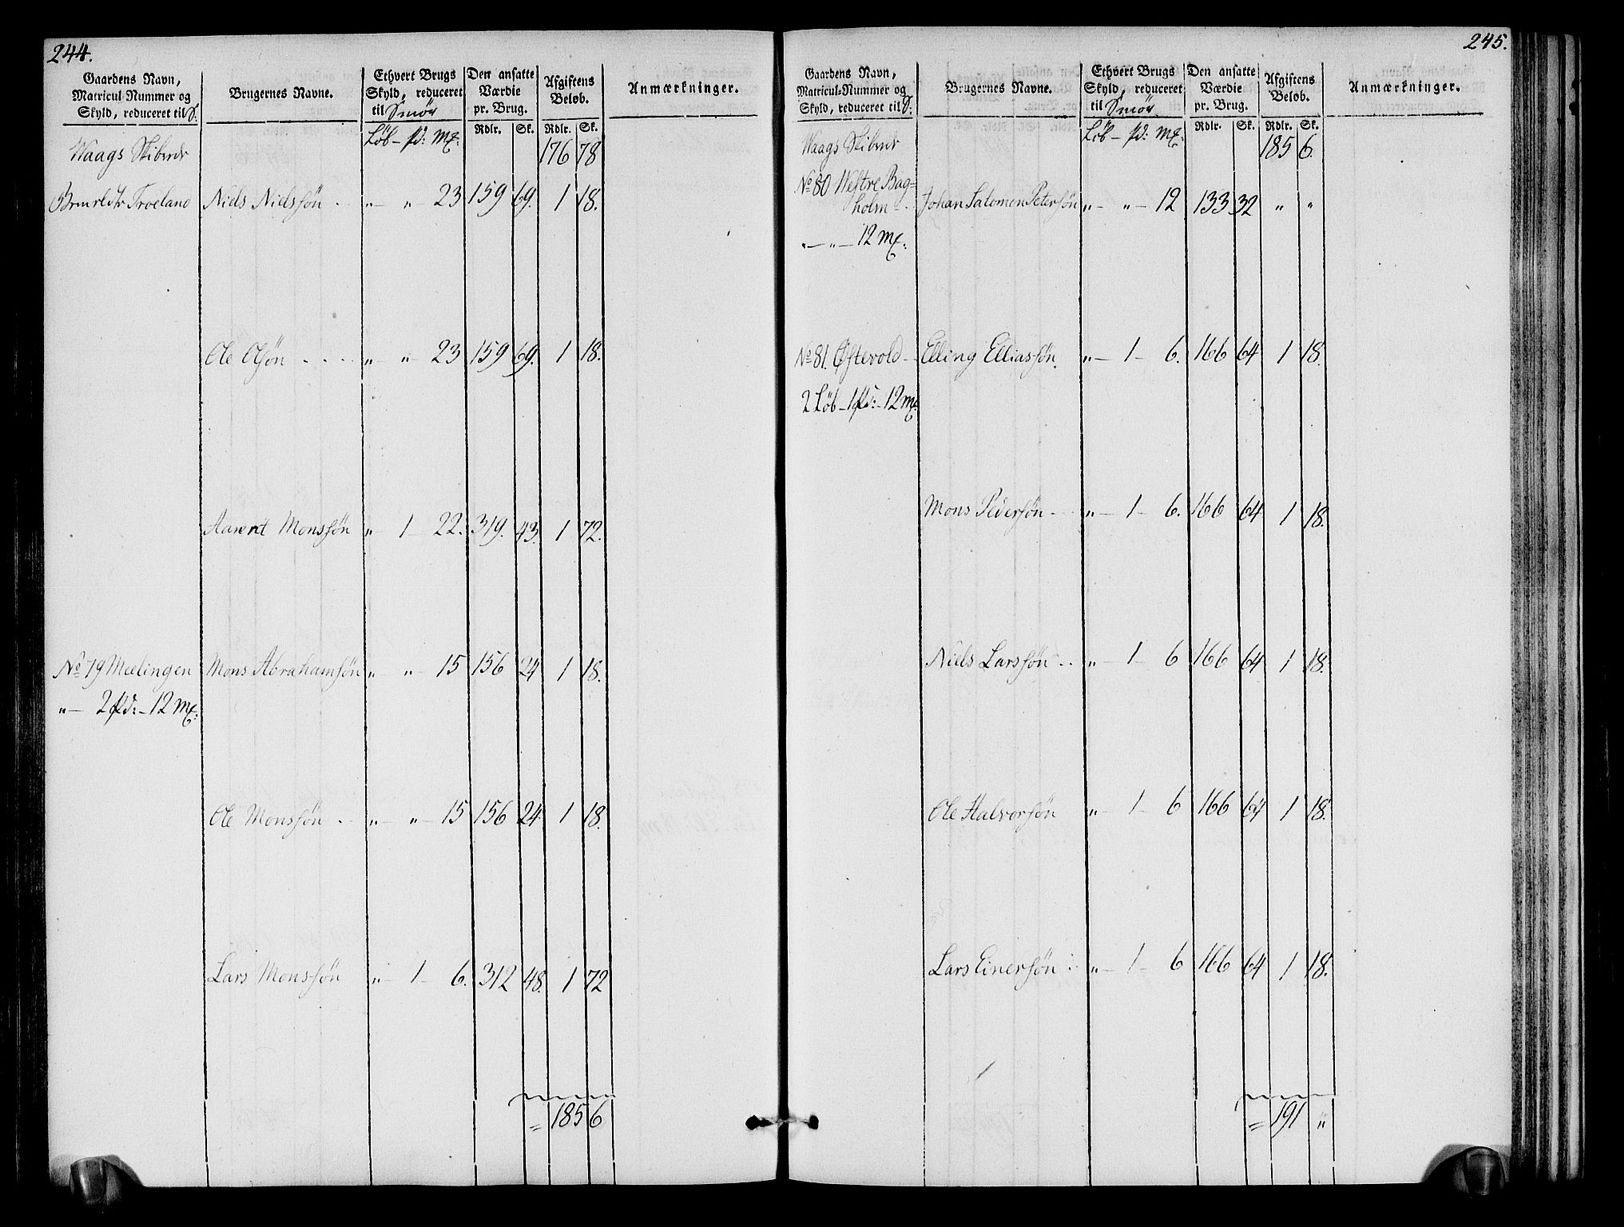 244.
Gaardens Navn,
Matricul-Nummer og
Skyld, reduceret til
Brugernes Navne.
Ethvert Brugs
Skyld, reduceret
til Smör
Den ansatte
Værdie
pr. Brug.
Afgiftens
Beløb.
Anmærkninger.
Rdlr. Sk. Rdlr. Sk.
Waags Skibrede Löb - pd: Mk: 176 78
Troeland Niels Nielssön „ „ 23 159 69. 1 18.
Ole Olsön „ „ 23 159 69. 1 18.
Aarent Monssön „ 1 22. 319. 43. 1 72.
No 79 Mælingen Mons Abrahamsön „ „ 15 156 24 1 18.
„ - 2 pd: - 12 Mk:
Ole Monssön „ „ 15 156 24 1 18.
Lars Monssön „ 1 6. 312 48. 1 72
= 185 6
245.
Gaardens Navn,
Matricul-Nummer og
Skyld, reduceret til
Brugernes Navne.
Ethvert Brugs
Skyld, reduceret
til Smör
Den ansatte
Værdie
pr. Brug.
Afgiftens
Beløb.
Anmærkninger.
Rdlr. Sk. Rdlr. Sk.
Waags Skibrede Löb - pd: Mk: 185 6.
No 80 Westre Bag=
holm Johan Salomon Petersön „ „ 12 133 32 „ „
„ - „ - 12 Mk:
No 81. Østevold Elling Elliassön. „ 1 6. 166 64 1 18
2 Löb - 1 pd: - 12 Mk:
Mons Pedersön „ 1 6. 166 64 1 18.
Niels Larssön „ 1 6 166 64 1 18.
Ole Halvorsön „ 1 6 166 64 1 18.
Lars Einersön „ 1 6 166 64 1 18.
= 191 „